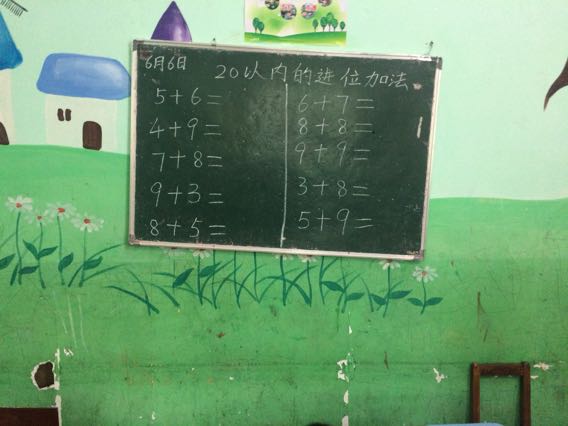 6月6日
20以内的进位加法
5+6=
4+9=
7+8=
9+3=
8+5=
6+7=
8+8=
9+9=
3+8=
5+9=